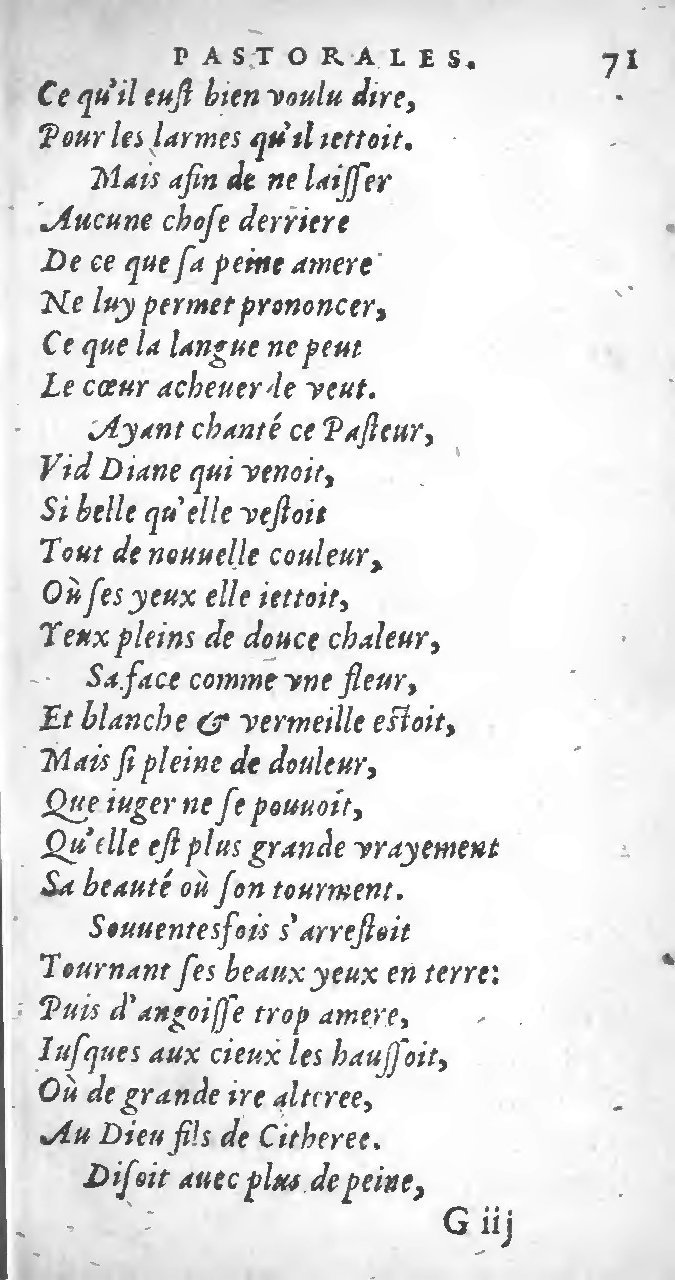 PASTORALES. 71
Ce qu'il euſt bien voulu dire,
Pour les larmes qu'il iettoit.
Mais afin de ne laiſſer
Aucune choſe derriere
De ce que ſa peine amere
Ne luy permet prononcer,
Ce que la langue ne peut
Le cœur acheuer le veut.
Ayant chanté ce Paſteur,
Vid Diane qui venoit,
Si belle qu'elle veſtoit
Tout de nouuelle couleur,
Où ſes yeux elle iettoit,
Yeux pleins de douce chaleur,
Sa face comme vne fleur,
Et blanche & vermeille eſtoit,
Mais ſi pleine de douleur,
Que iuger ne ſe pouuoit,
Qu'elle eſt plus grande vrayement
Sa beauté où ſon tourment.
Souuentesfois s'arreſtoit
Tournant ſes beaux yeux en terre:
Puis d'angoiſſe trop amere,
Iuſques aux cieux les hauſſoit,
Où de grande ire alteree,
Au Dieu fils de Citheree.
Diſoit auec plus de peine,
G iij